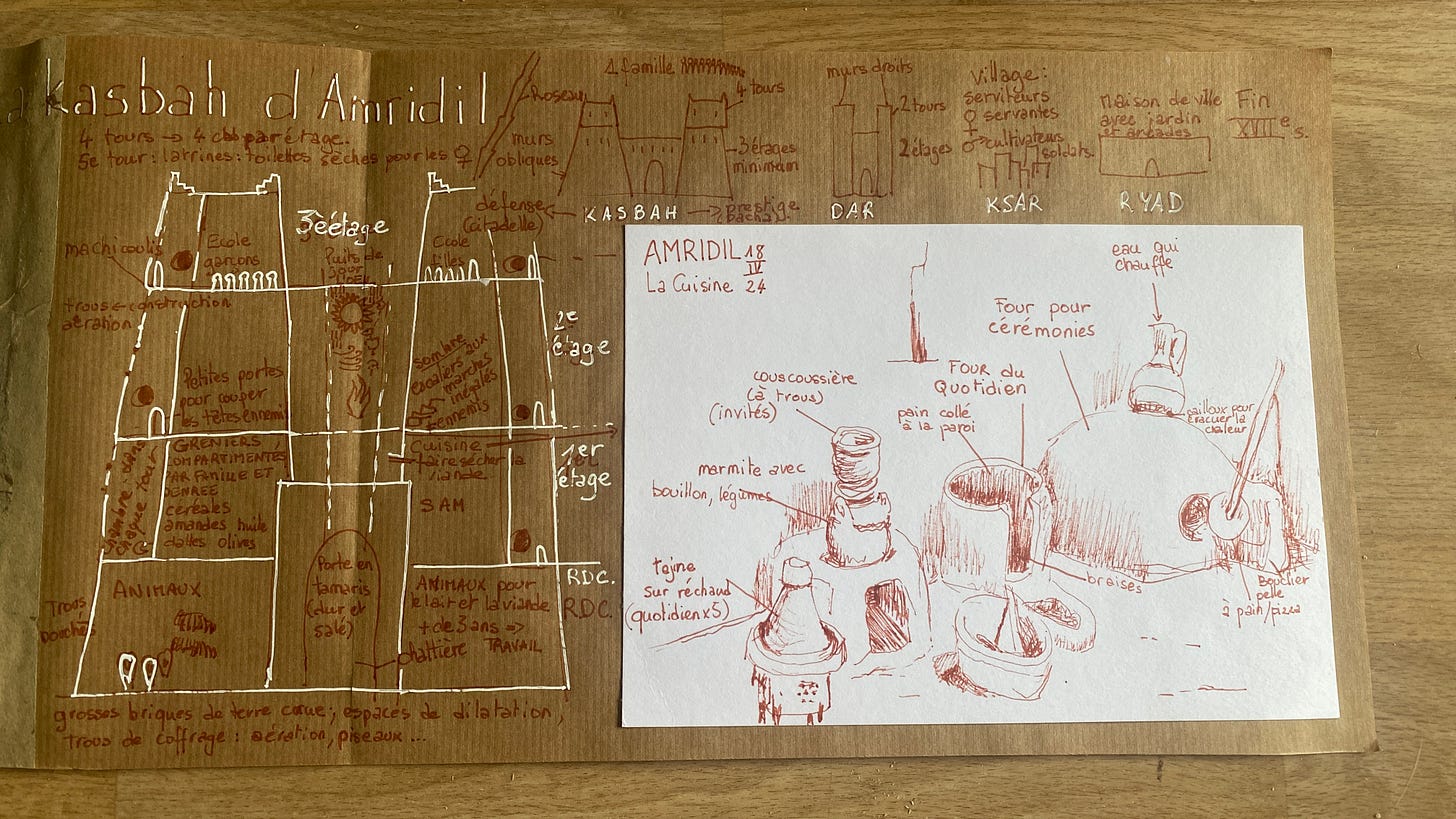 Kasbah d'Amridil
4 tours → 4 chb par étage.
5e tour : latrines : toilettes sèches pour les ♀
Roseau
murs
obliques
1 famille
4 tours
3 étages
minimum
défense
(citadelle)
KASBAH
prestige
(pacha).
murs droits
2 tours
2 étages
DAR
village :
serviteurs
♀ servantes
♂ cultivateurs
soldats.
KSAR
Maison de ville
avec jardin
et arcades
RYAD
Fin
XVIIe s.
machicoulis
Ecole
garçons
3è étage
Puits de
jour
Ecole
filles
trous ← construction
aération
2e
étage
Petites portes
pour couper
les têtes ennemis
sombre
escaliers aux
marches
inégales
ennemis
GRENIERS
COMPARTIMENTÉS
PAR FAMILLE ET
DENRÉE
céréales
amandes huile
dattes olives
chambre dans
chaque tour
Cuisine
faire sécher la
viande
SAM
1er
étage
RDC.
R.D.C.
ANIMAUX
Trous
bouchés
Porte en
tamaris
(dur et
salé)
ANIMAUX pour
le lait et la viande
+ de 3 ans =>
TRAVAIL
chattière
grosses briques de terre crue ; espaces de dilatation,
trous de coffrage : aération, piseaux ...
AMRIDIL 18
IV
La Cuisine 24
eau qui
chauffe
Four pour
cérémonies
Four du
Quotidien
couscoussière
(à trous)
(invités)
pain collé
à la paroi
cailloux pour
évacuer la
chaleur
marmite avec
bouillon, légumes
tajine
sur réchaud
(quotidien x5)
braises
Bouclier
pelle
à pain/pizza